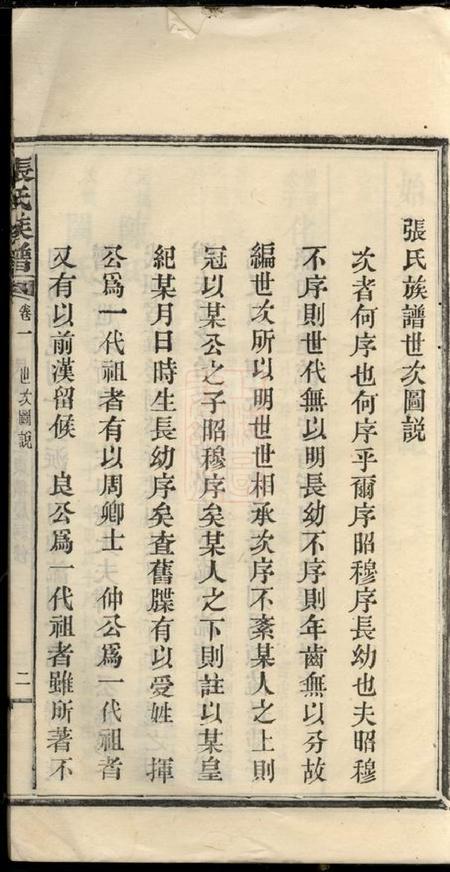 張氏族譜世次圖說
次者何序也何序乎爾序昭穆序長幼也夫昭穆
不序則世代無以明長幼不序則年齒無以分故
編世次所以明世世相承次序不紊某人之上則
冠以某公之子昭穆序矣某人之下則註以某皇
紀某月日時生長幼序矣查舊牒有以受姓　揮
公爲一代祖者有以周卿士　仲公爲一代祖者
又有以前漢留候　良公爲一代祖者雖所著不
張氏族譜　卷一　世次圖說　二